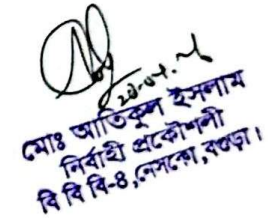 ২০-০৮-
মোঃ আতিকুল ইসলাম
নির্বাহী প্রকৌশলী
বি বি বি-৪, নেসকো, বগুড়া।